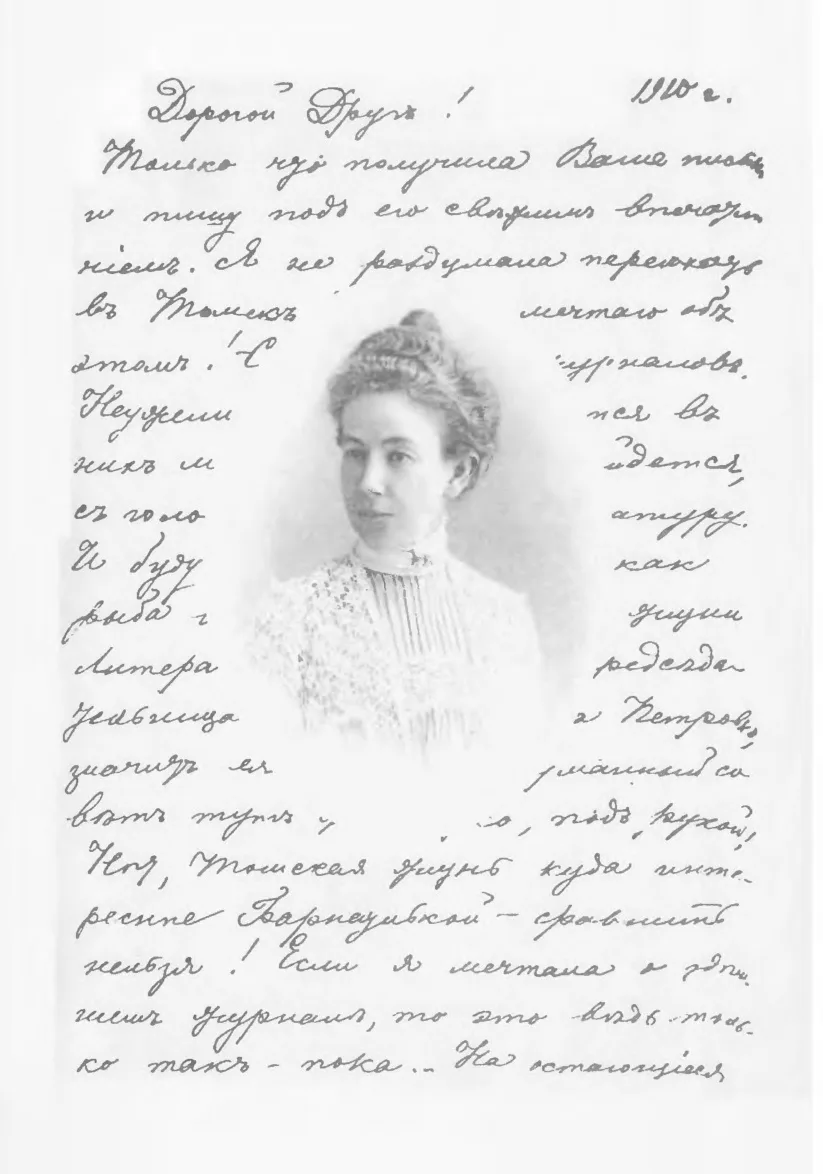 Дорогой Другъ! 1910 г.
Только что получила Ваше письм
и пишу подъ его свѣжимъ впечатл
ніемъ. Я не раздумала переѣхать
въ Томскъ мечтаю объ
этомъ! С журналовъ.
Неужели тся въ
никъ м йдется,
съ голо атуру.
И буду как
рыба г жизни
Литера редсѣда
тельница а Петровъ,
значитъ ея рманный со
вѣтъ тутъ о, подъ рукой!
Нѣт, Томская жизнь куда инте-
реснѣе Барнаульской - сравнить
нельзя! Если я мечтала о
немъ журналѣ, то это вѣдь толь-
ко такъ - пока.. На остающіеся